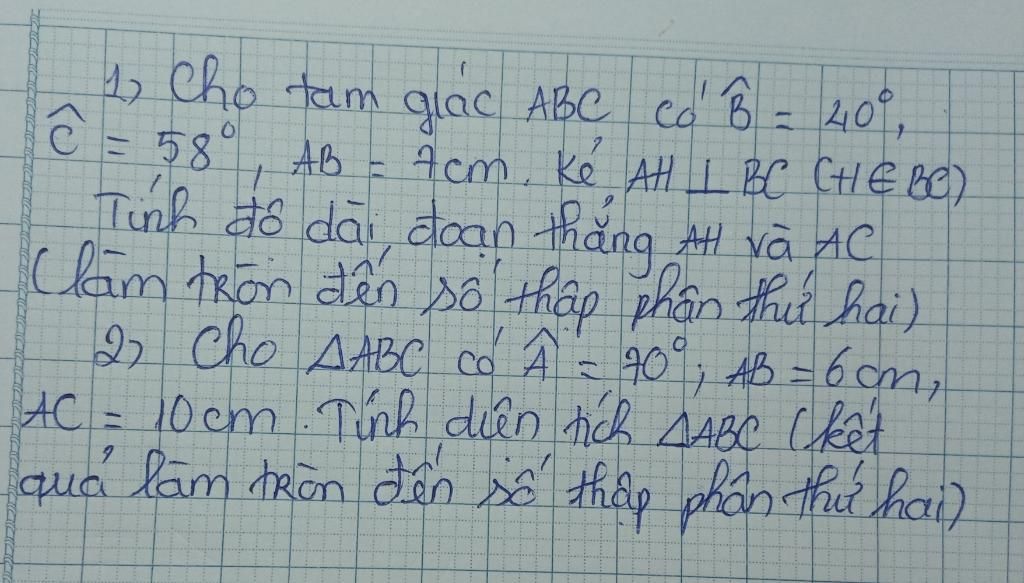 1, Cho tam giác ABC có B̂ = 40°,
Ĉ = 58°, AB = 7cm. Kẻ AH ⊥ BC (H ∈ BC)
Tính độ dài đoạn thẳng AH và AC
(làm tròn đến số thập phân thứ hai)
2, Cho ΔABC có Â = 70°; AB = 6cm,
AC = 10cm. Tính diện tích ΔABC (kết
quả làm tròn đến số thập phân thứ hai)